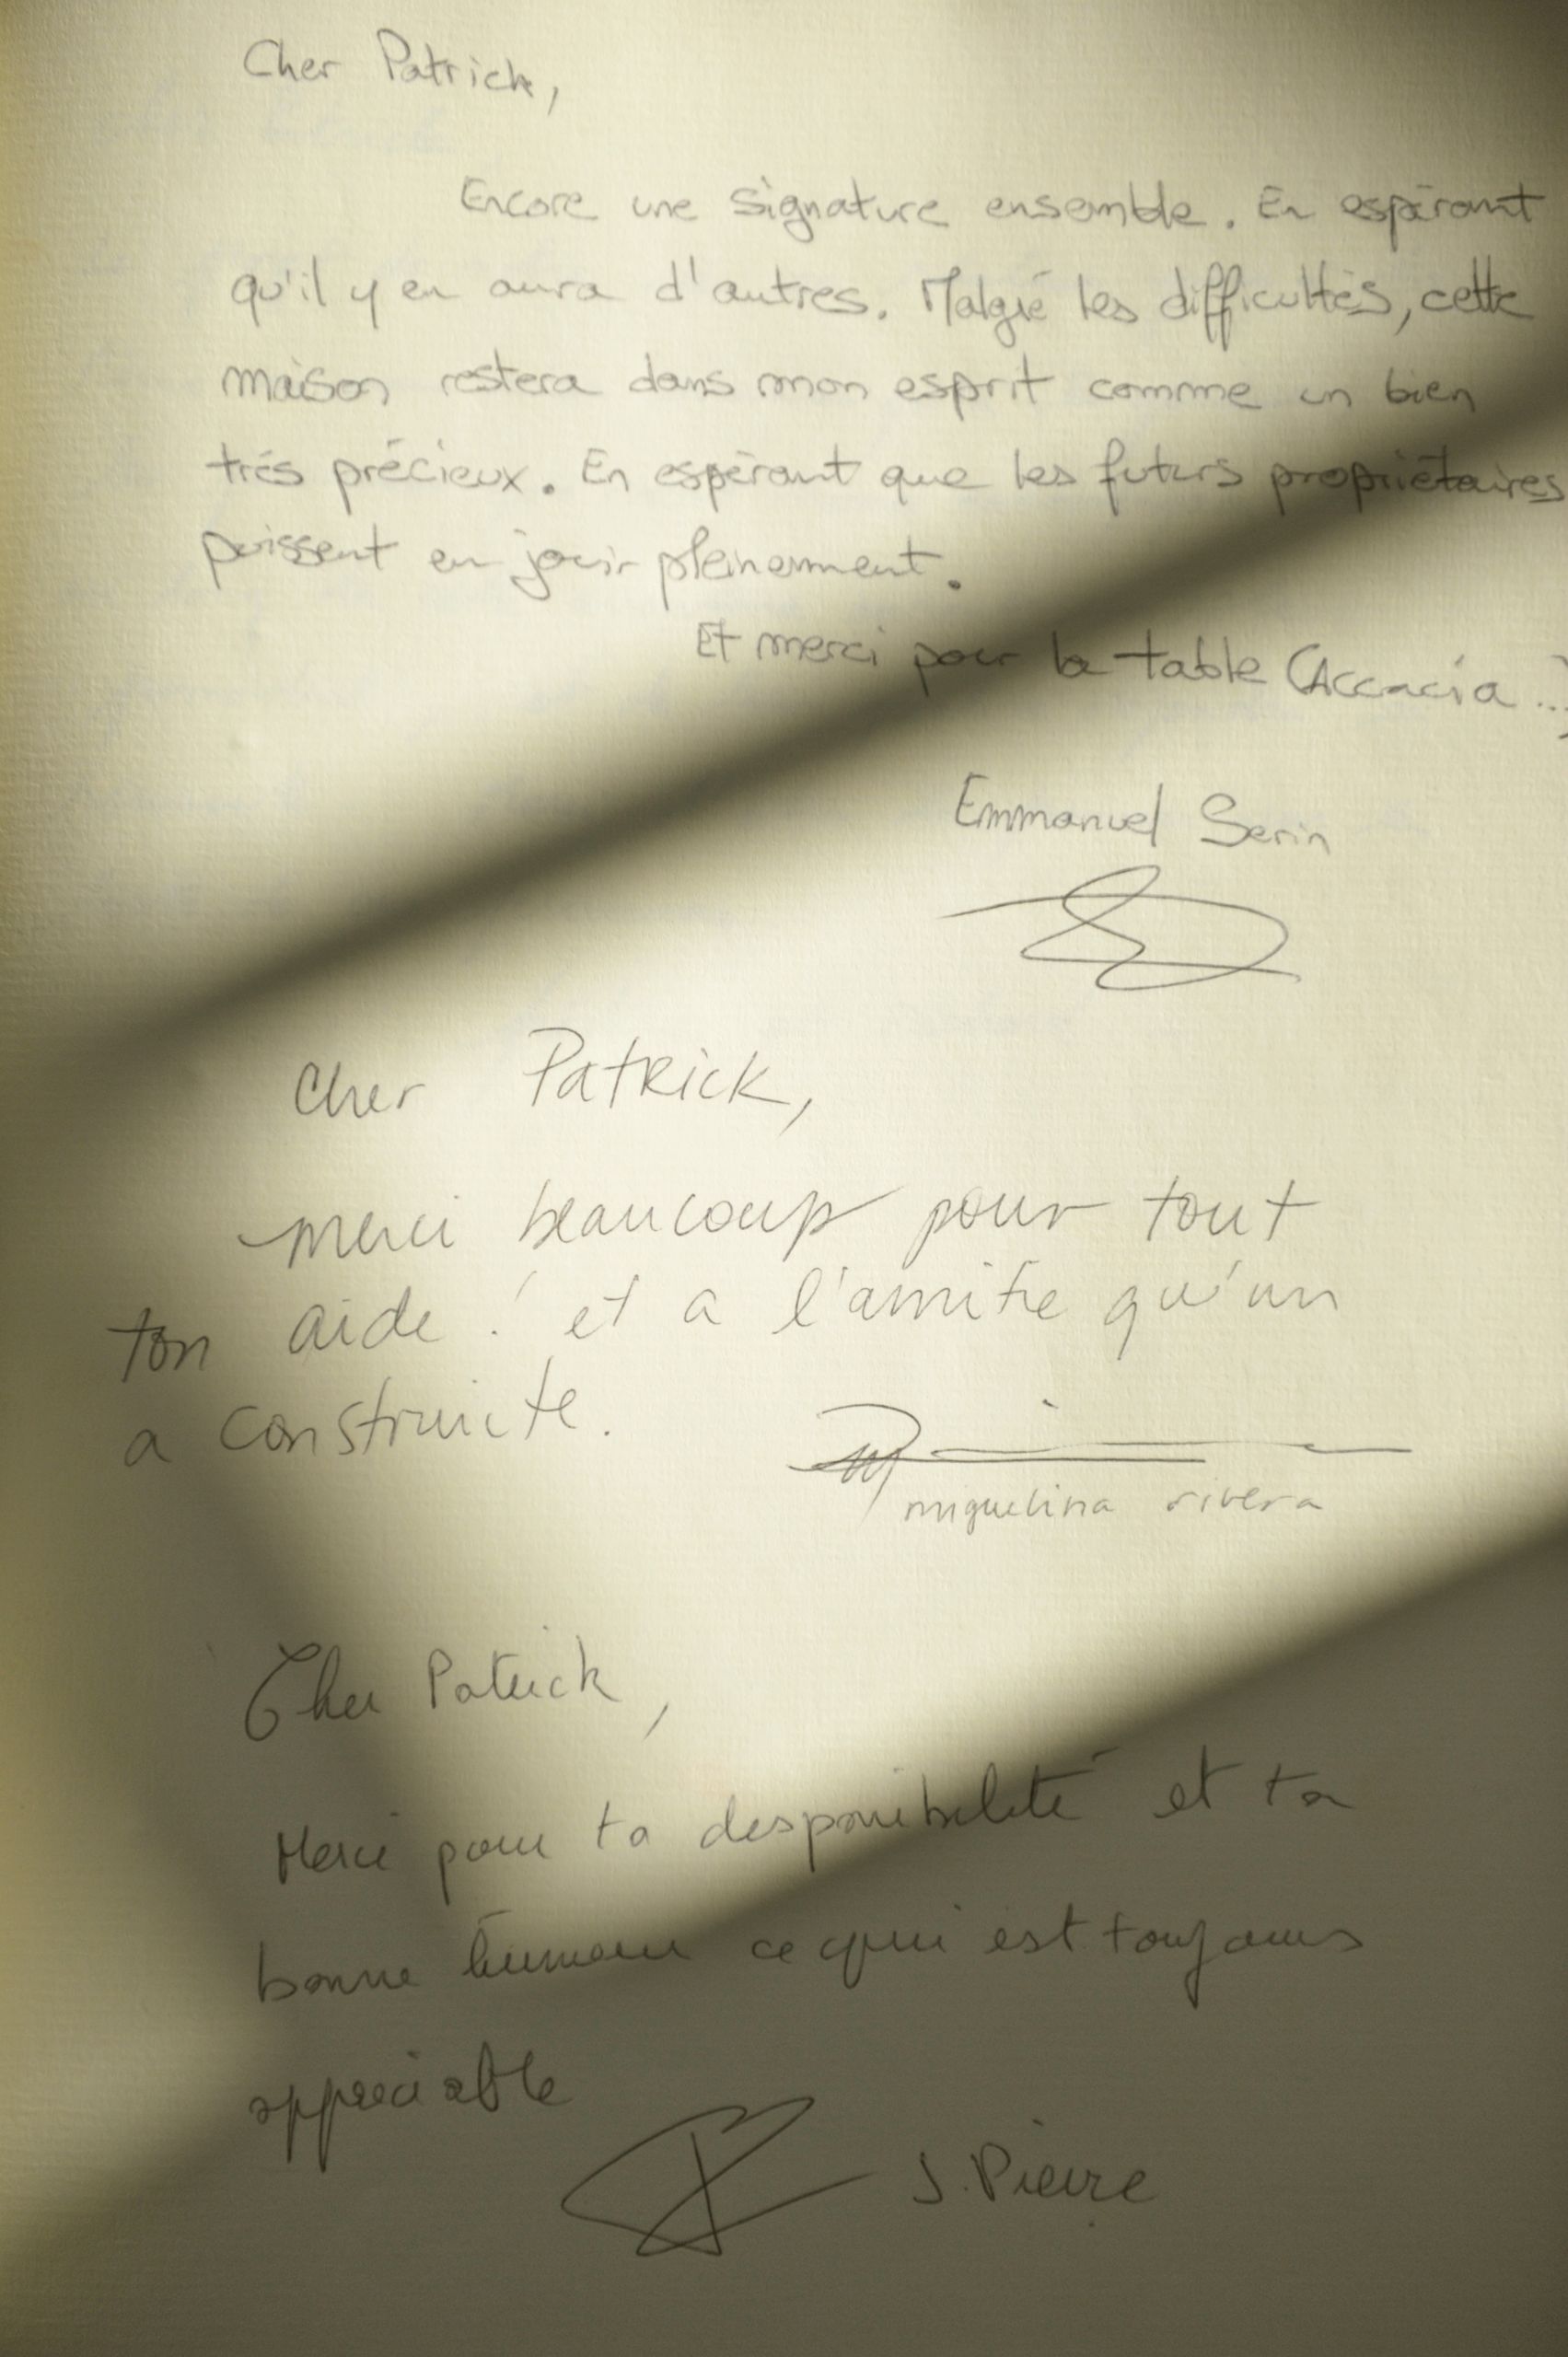 Cher Patrick,
Encore une signature ensemble. En espérant
qu'il y en aura d'autres. Malgré les difficultés, cette
maison restera dans mon esprit comme un bien
très précieux. En espérant que les futurs propriétaires
puissent en jouir pleinemment.
Et merci pour la table (Accacia ...)
Emmanuel Serin
Cher Patrick,
merci beaucoup pour tout
ton aide ! et a l'amitie qu'un
a construite.
miguelina rivera
Cher Patrick,
Merci pour ta desponibilité et ta
bonne humeur ce qui est toujours
appreciable
J. Pierre